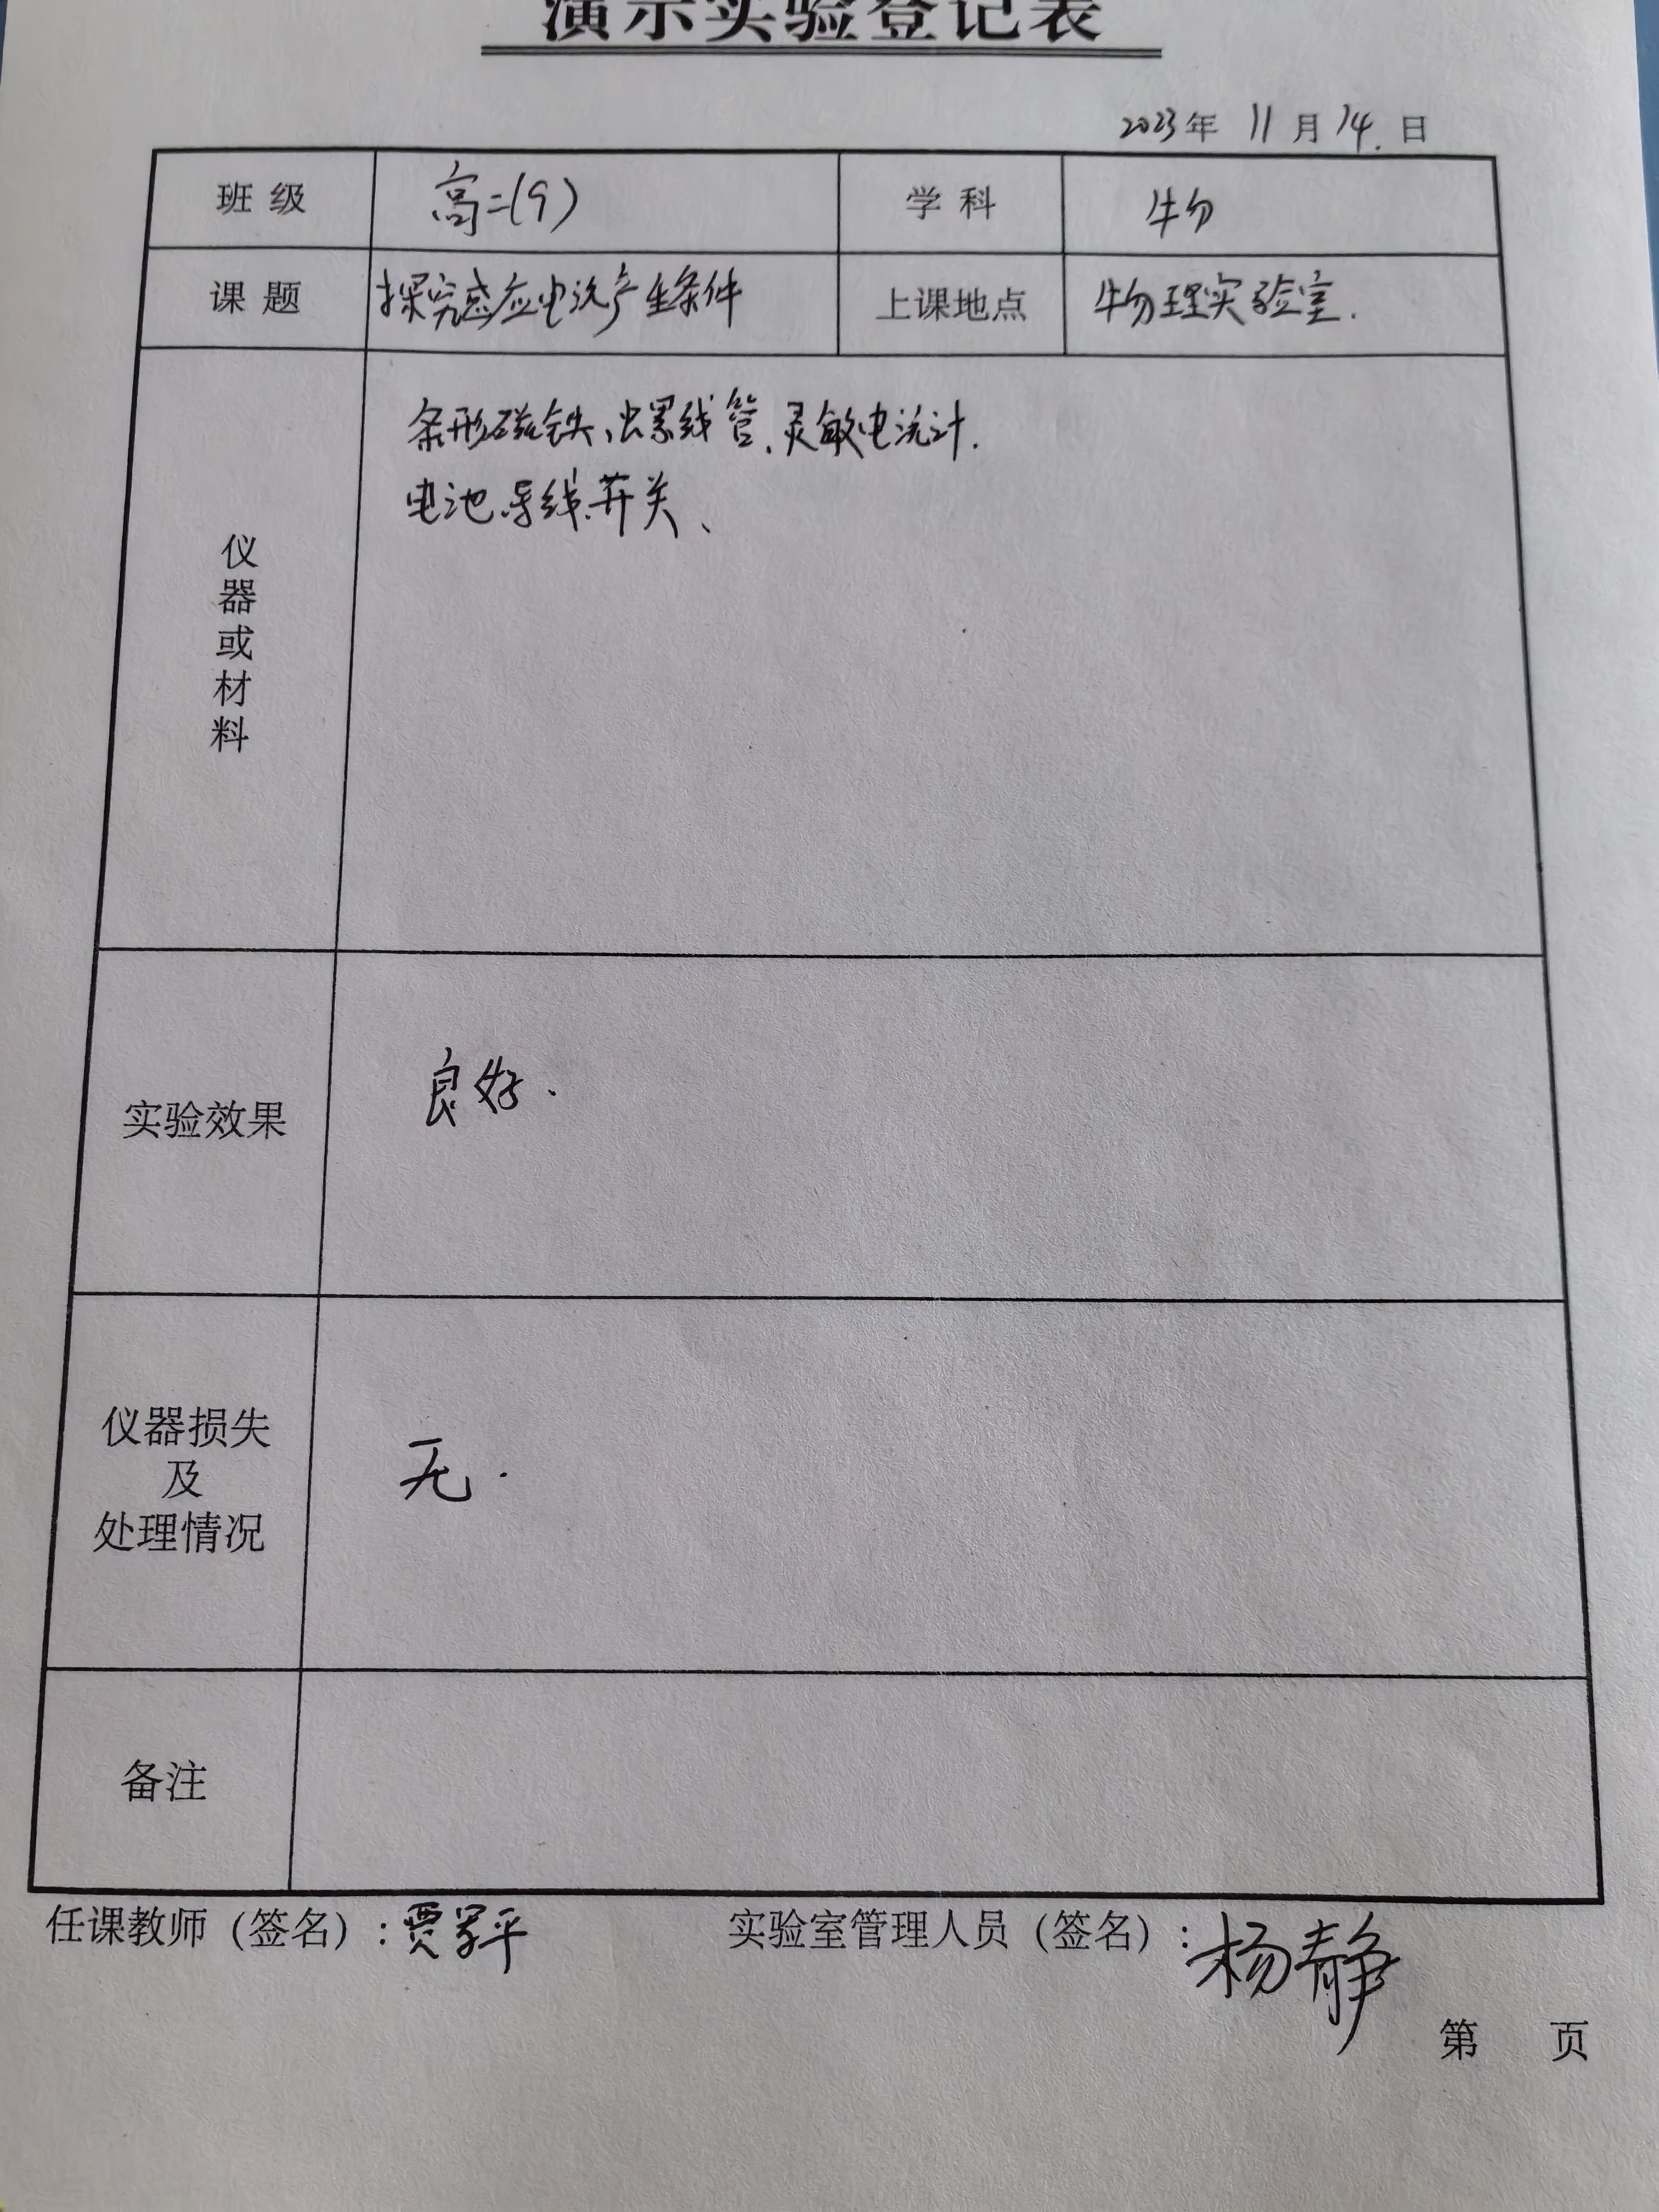 演示实验登记表
2023年 11月 14.日
班级 高二(9) 学科 物
课题 探究感应电流产生条件 上课地点 物理实验室.
条形磁铁、螺线管、灵敏电流计.
电池、导线、开关、
仪
器
或
材
料
实验效果 良好.
仪器损失
及
处理情况
无.
备注
任课教师（签名）: 贾 平 实验室管理人员（签名）: 杨静
第 页